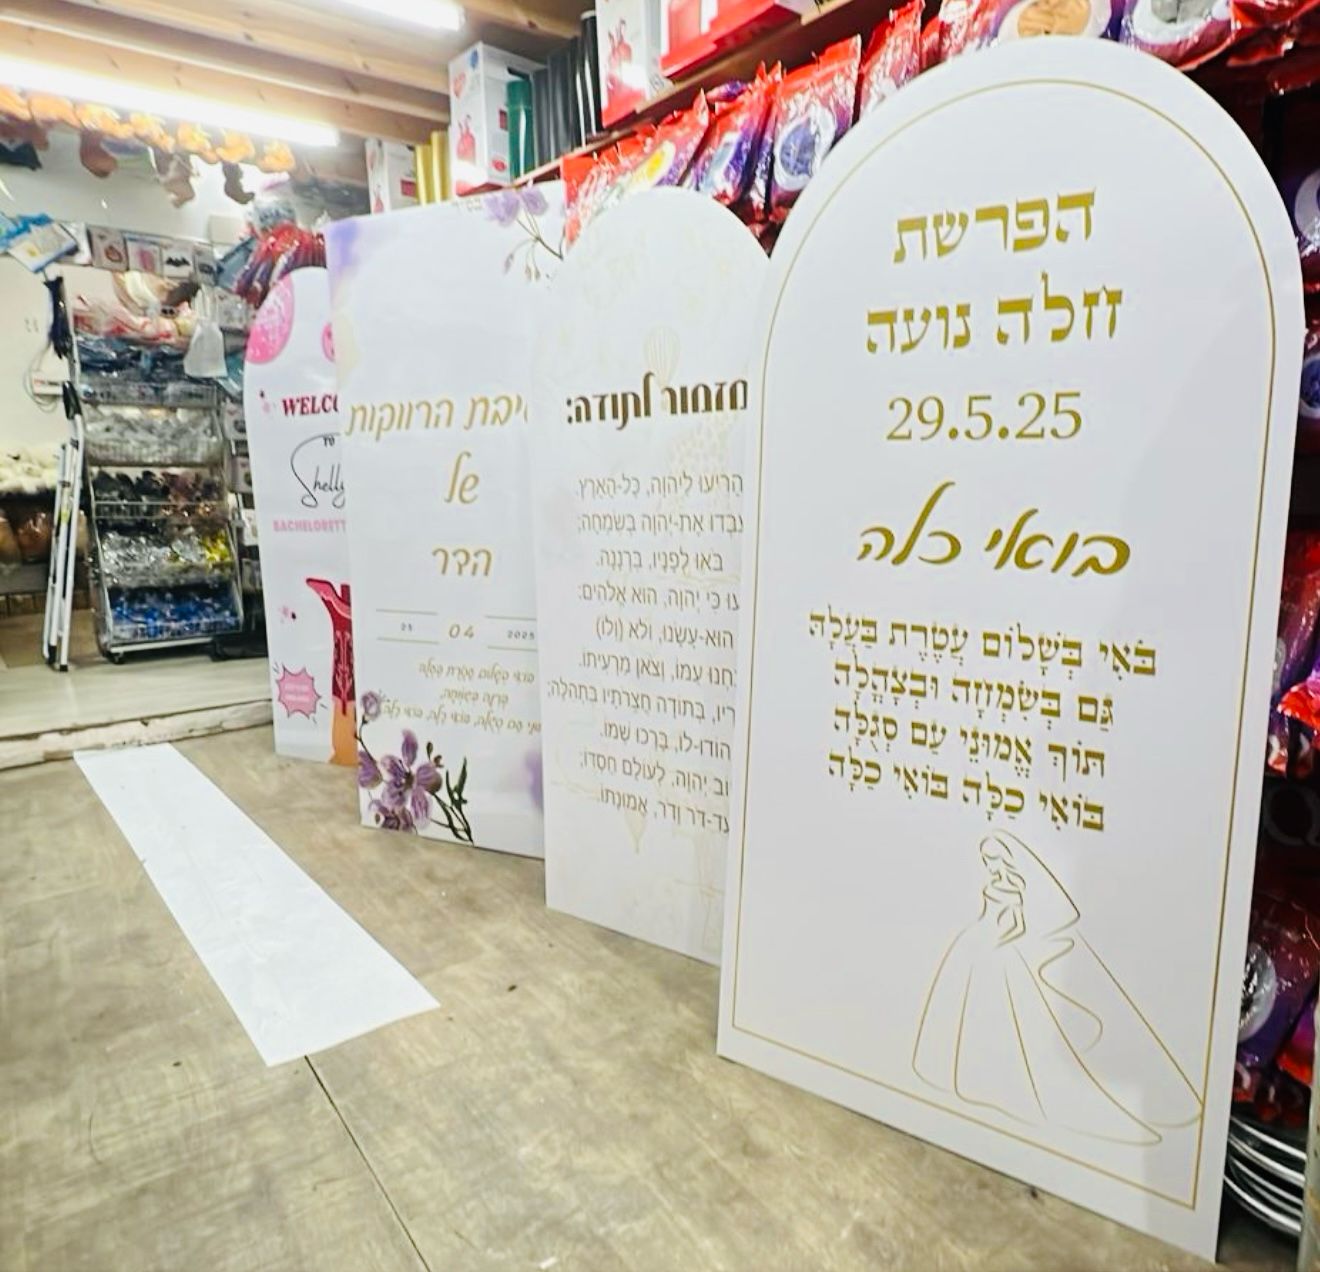 הפרשת
חלה נועה
29.5.25
בואי כלה
בֹּאִי בְּשָׁלוֹם עֲטֶרֶת בַּעֲלָהּ
גַּם בְּשִׂמְחָה וּבְצָהֳלָה
תּוֹךְ אֱמוּנֵי עַם סְגֻלָּה
בּוֹאִי כַלָּה בּוֹאִי כַלָּה
מזמור לתודה:
הָרִיעוּ לַיהוָה, כָּל-הָאָרֶץ.
עִבְדוּ אֶת-יְהוָה בְּשִׂמְחָה;
בֹּאוּ לְפָנָיו, בִּרְנָנָה.
כִּי יְהוָה, הוּא אֱלֹהִים:
הוּא-עָשָׂנוּ, וְלֹא (וְלוֹ)
עַמּוֹ, וְצֹאן מַרְעִיתוֹ.
בְּתוֹדָה חֲצֵרֹתָיו בִּתְהִלָּה;
הוֹדוּ-לוֹ, בָּרְכוּ שְׁמוֹ.
יְהוָה, לְעוֹלָם חַסְדּוֹ;
דֹּר וָדֹר, אֱמוּנָתוֹ.
הרווקות
של
הדר
25 04 2025
WELCO
TO
Shelly
BACHELORETT